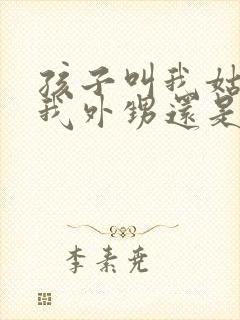 孩子叫我姑
我外甥還是
李素尧